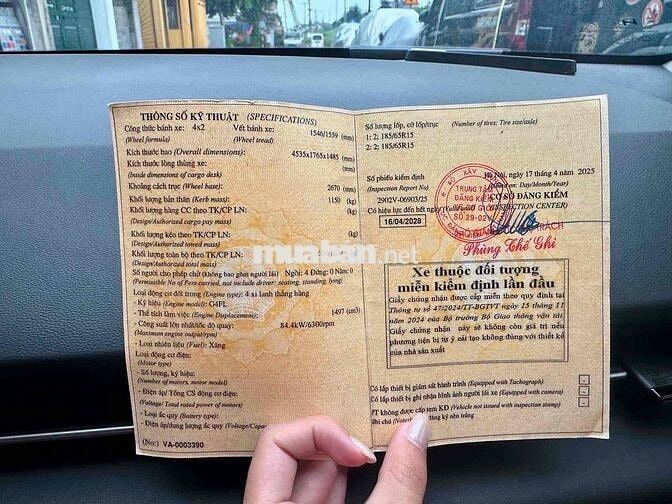 THÔNG SỐ KỸ THUẬT (SPECIFICATIONS)
Công thức bánh xe: 4x2 Vết bánh xe: 1546/1559 (mm)
(Wheel formula) (Wheel tread)
Kích thước bao (Overall dimensions): 4535x1765x1485 (mm)
Kích thước lòng thùng xe: (mm)
(Inside dimensions of cargo desk)
Khoảng cách trục (Wheel base): 2670 (mm)
Khối lượng bản thân (Kerb mass): 1150 (kg)
Khối lượng hàng CC theo TK/CP LN: (kg)
(Design/Authorized cargo pay mass)
Khối lượng kéo theo TK/CP LN: (kg)
(Design/Authorized towed mass)
Khối lượng toàn bộ theo TK/CP LN:
(Design/Authorized total mass)
Số người cho phép chở (không bao gồm người lái) Ngồi: 4 Đứng: 0 Nằm: 0
(Permissible No of Pers carried, not include driver: seating, standing, lying)
Loại động cơ đốt trong (Engine type): 4 xi lanh thẳng hàng
- Ký hiệu (Engine model): G4FL
- Thể tích làm việc (Engine Displacement): 1497 (cm3)
- Công suất lớn nhất/tốc độ quay: 84.4kW/6300rpm
(Maximum engine output/rpm)
- Loại nhiên liệu (Fuel): Xăng
Loại động cơ điện:
(Motor type)
- Số lượng, ký hiệu:
(Number of motors, motor model)
- Điện áp/ Tổng CS động cơ điện:
(Voltage/ Total rated power of motors)
- Loại ắc quy (Battery type):
- Điện áp/dung lượng ắc quy (Voltage/Capa
(No:) VA-0003390
Số lượng lốp, cỡ lốp/trục (Number of tires: Tire size/axle)
1: 2; 185/65R15
2: 2; 185/65R15
Số phiếu kiểm định Hà Nội, ngày 17 tháng 4 năm 2025
(Inspection Report No) on: Day/Month/Year)
2902V-06903/25 CƠ SỞ ĐĂNG KIỂM
Có hiệu lực đến hết ngày (INSPECTION CENTER)
16/04/2028
TRUNG TÂM
ĐĂNG KIỂM
XE CƠ GIỚI
SỐ 29-02V
TRÁCH
Phùng Thế Ghi
Xe thuộc đối tượng
miễn kiểm định lần đầu
Giấy chứng nhận được cấp miễn theo quy định tại
Thông tư số 47/2024/TT-BGTVT ngày 15 tháng 11
năm 2024 của Bộ trưởng Bộ Giao thông vận tải.
Giấy chứng nhận này sẽ không còn giá trị nếu
phương tiện bị tự ý cải tạo không đúng với thiết kế
của nhà sản xuất
Có lắp thiết bị giám sát hành trình (Equipped with Tachograph)
Có lắp thiết bị ghi nhận hình ảnh người lái xe (Equipped with camera)
không được cấp tem KĐ (Vehicle not issued with inspection stamp)
Ghi chú đăng ký nền trắng
muaban.net